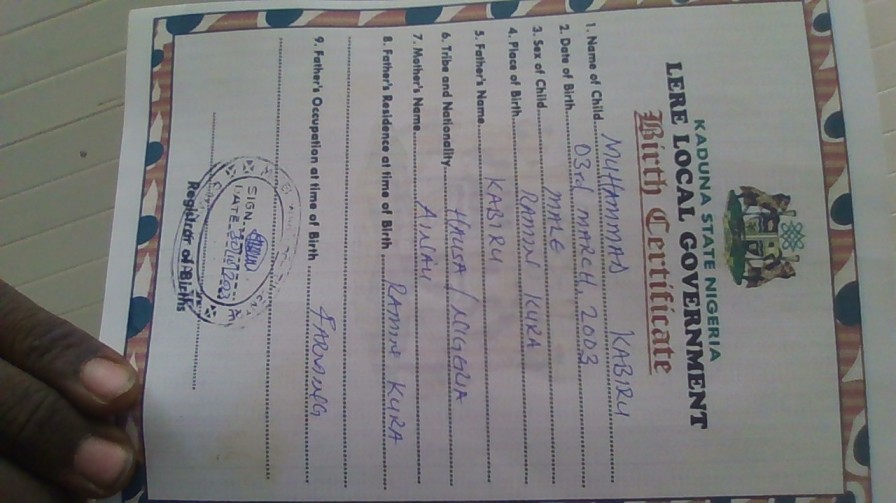 KADUNA STATE NIGERIA
LERE LOCAL GOVERNMENT
Birth Certificate
1. Name of Child MUHAMMAD KABIRU
2. Date of Birth 03rd MARCH, 2003
3. Sex of Child MALE
4. Place of Birth RAMIN KURA
5. Father's Name KABIRU
6. Tribe and Nationality HAUSA / NIGERIA
7. Mother's Name AINAU
8. Father's Residence at time of Birth RAMIN KURA
9. Father's Occupation at time of Birth FARMING
SIGN
DATE
Registrar of Births